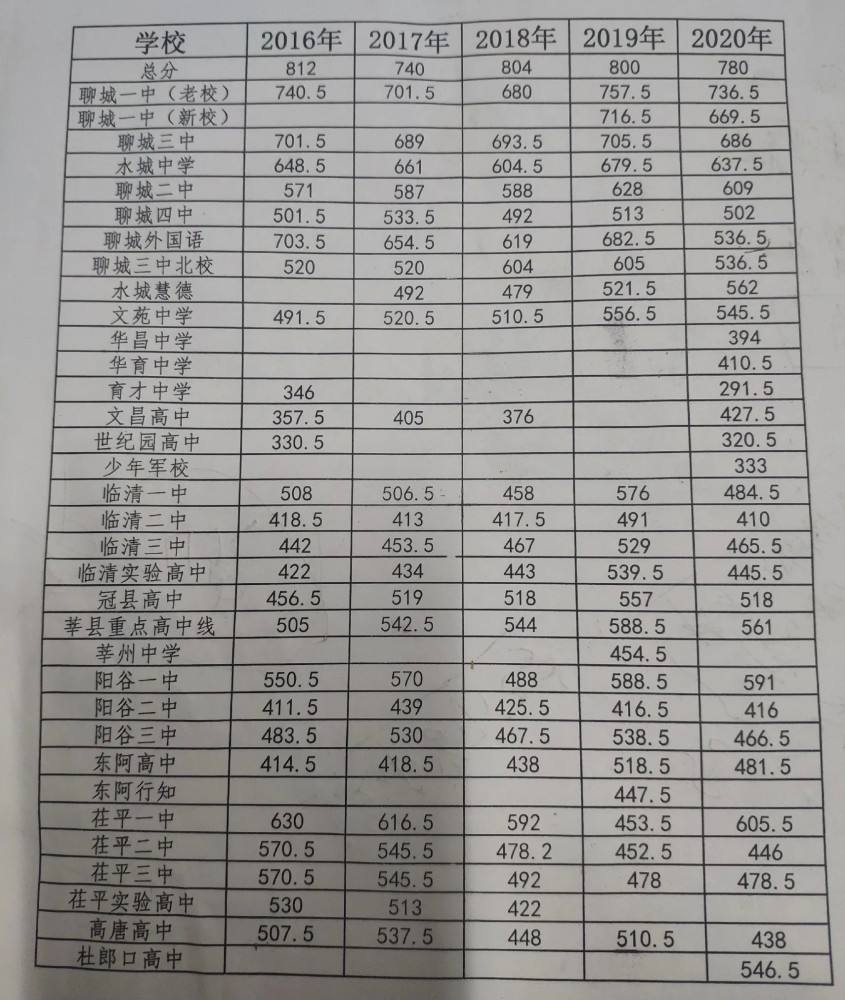 学校 2016年 2017年 2018年 2019年 2020年
总分 812 740 804 800 780
聊城一中（老校） 740.5 701.5 680 757.5 736.5
聊城一中（新校） 716.5 669.5
聊城三中 701.5 689 693.5 705.5 686
水城中学 648.5 661 604.5 679.5 637.5
聊城二中 571 587 588 628 609
聊城四中 501.5 533.5 492 513 502
聊城外国语 703.5 654.5 619 682.5 536.5
聊城三中北校 520 520 604 605 536.5
水城慧德 492 479 521.5 562
文苑中学 491.5 520.5 510.5 556.5 545.5
华昌中学 394
华育中学 410.5
育才中学 346 291.5
文昌高中 357.5 405 376 427.5
世纪园高中 330.5 320.5
少年军校 333
临清一中 508 506.5 458 576 484.5
临清二中 418.5 413 417.5 491 410
临清三中 442 453.5 467 529 465.5
临清实验高中 422 434 443 539.5 445.5
冠县高中 456.5 519 518 557 518
莘县重点高中线 505 542.5 544 588.5 561
莘州中学 454.5
阳谷一中 550.5 570 488 588.5 591
阳谷二中 411.5 439 425.5 416.5 416
阳谷三中 483.5 530 467.5 538.5 466.5
东阿高中 414.5 418.5 438 518.5 481.5
东阿行知 447.5
茌平一中 630 616.5 592 453.5 605.5
茌平二中 570.5 545.5 478.2 452.5 446
茌平三中 570.5 545.5 492 478 478.5
茌平实验高中 530 513 422
高唐高中 507.5 537.5 448 510.5 438
杜郎口高中 546.5